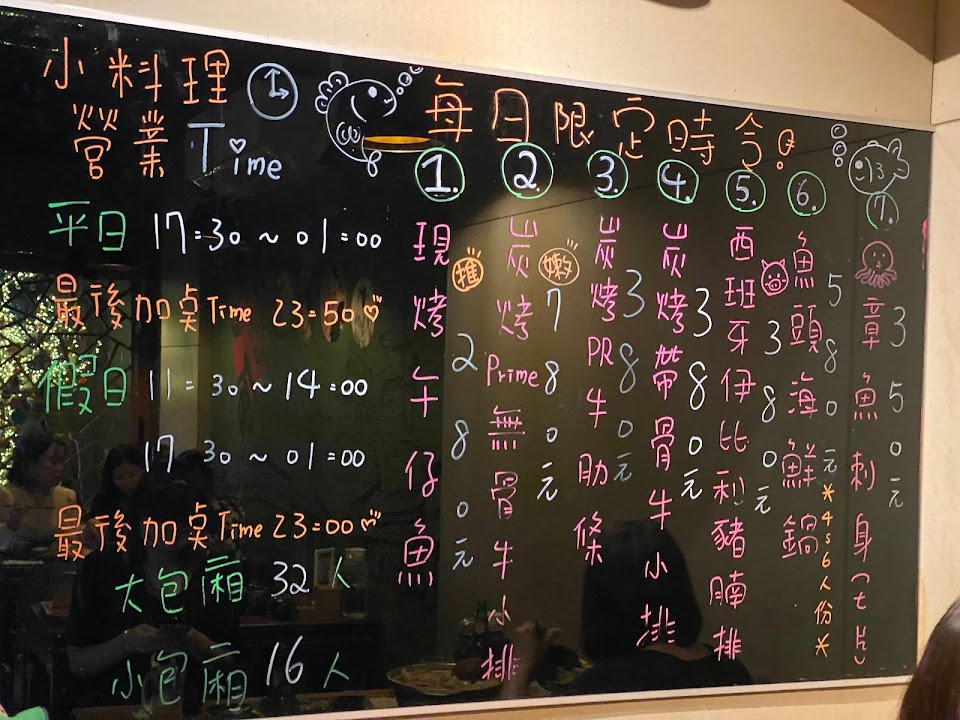 小料理
營業Time
平日 17:30~01:00
最後加桌Time 23:50
假日 11:30~14:00
17:30~01:00
最後加桌Time 23:00
大包廂 32人
小包廂 16人
每日限定時令!
1. 現烤午仔魚 280元
推
2. 炭烤Prime無骨牛小排 780元
嫩
3. 炭烤PR牛肋條 380元
4. 炭烤帶骨牛小排 380元
5. 西班牙伊比利豬腩排 380元
6. 魚頭海鮮鍋 580元
*4~6人份*
7. 章魚刺身(七片) 350元